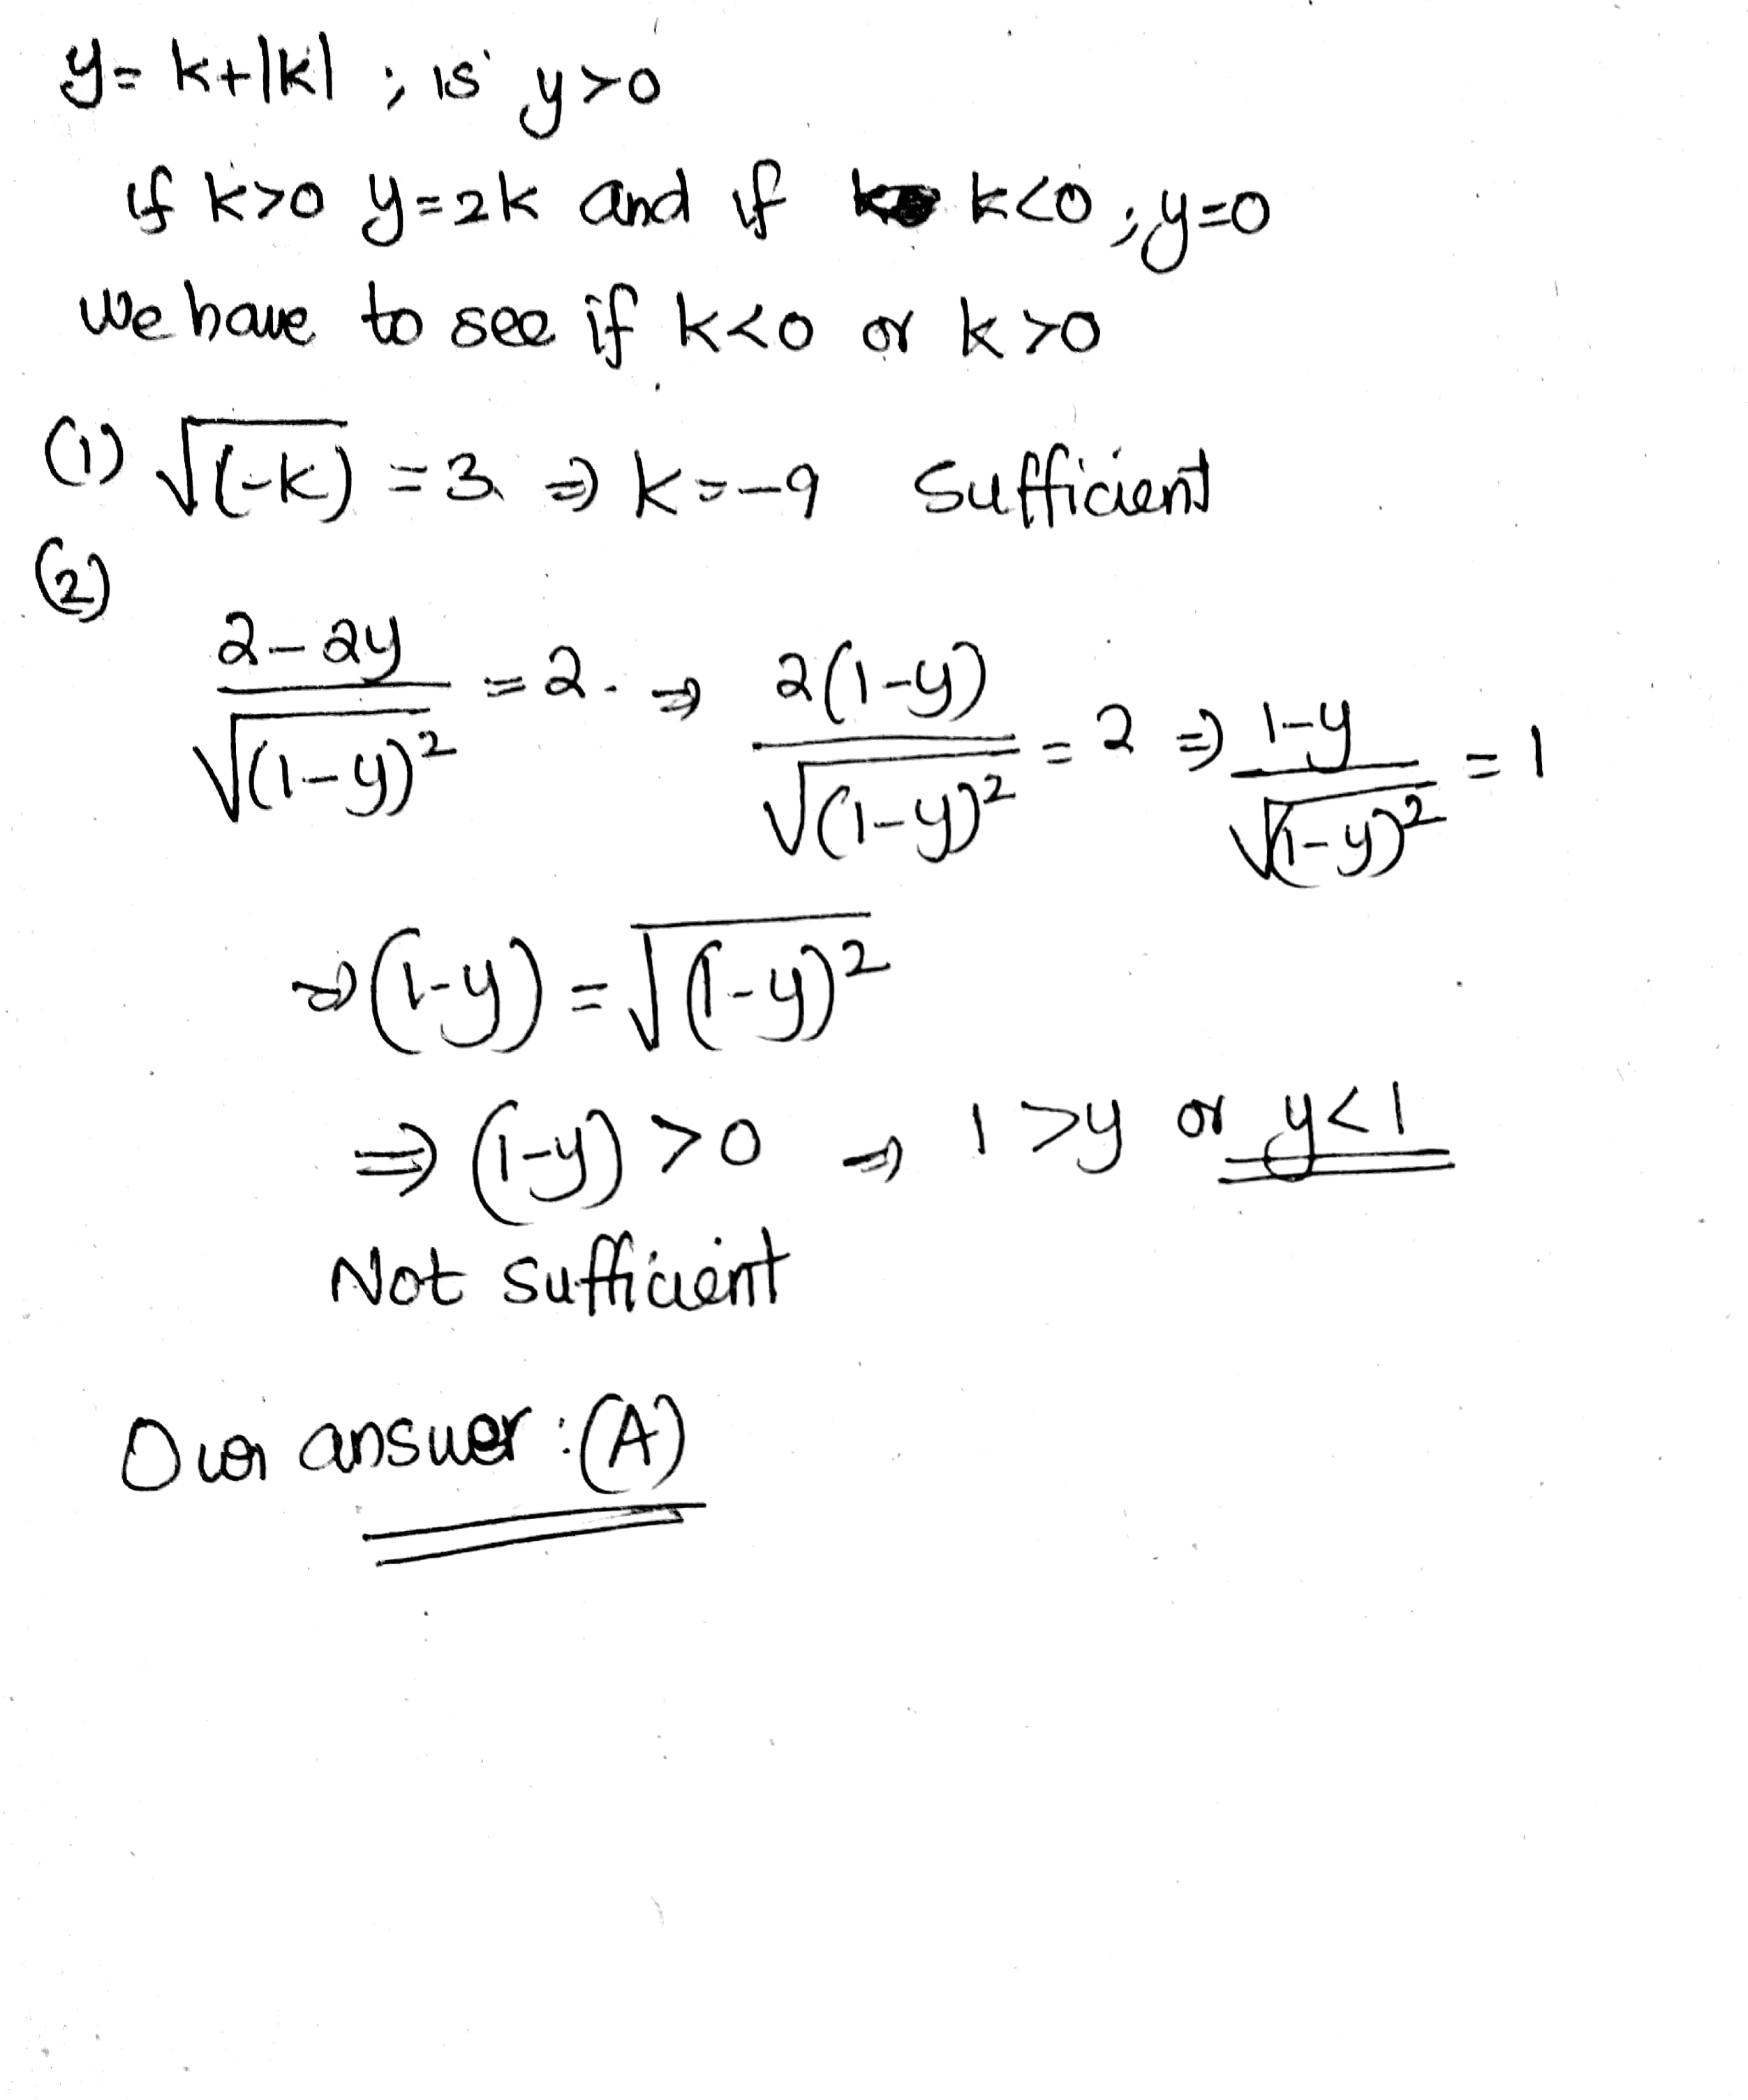 y = k+|k| ; is y>0
if k>0 y=2k and if k<0 ; y=0
We have to see if k<0 or k>0
(1) √(-k) = 3 ⇒ k=-9 Sufficient
(2)
(2-2y)/√(1-y)² = 2. ⇒ 2(1-y)/√(1-y)² = 2 ⇒ (1-y)/√(1-y)² = 1
⇒ (1-y) = √(1-y)²
⇒ (1-y) >0 ⇒ 1>y or y<1
Not sufficient
Our answer : (A)